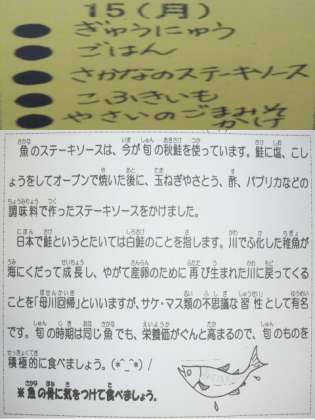 15(月)
● ぎゅうにゅう
● ごはん
● さかなのステーキソース
● こふきいも
● やさいのごまみそ
かけ
魚のステーキソースは、今が旬の秋鮭を使っています。鮭に塩、こし
ょうをしてオーブンで焼いた後に、玉ねぎやさとう、酢、パプリカなどの
調味料で作ったステーキソースをかけました。
日本で鮭というとたいては白鮭のことを指します。川でふ化した稚魚が
海にくだって成長し、やがて産卵のために再び生まれた川に戻ってくる
ことを「母川回帰」といいますが、サケ・マス類の不思議な習性として有名
です。旬の時期は同じ魚でも、栄養価がぐんと高まるので、旬のものを
積極的に食べましょう。(*^_^*)/
※魚の骨に気をつけて食べましょう。